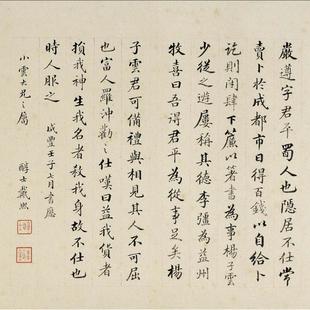 嚴遵字君平蜀人也隱居不仕常
賣卜於成都市日得百錢以自給卜
訖則閉肆下簾以著書為事楊子雲
少從之遊屢稱其德李彊為益州
牧喜曰吾得君平為從事足矣楊
子雲君可備禮與相見其人不可屈
也富人羅沖勸之仕嘆曰益我貨者
損我神生我名者殺我身故不仕也
時人服之
咸豐壬子七月書應
小雲大兄之屬
醇士戴熙